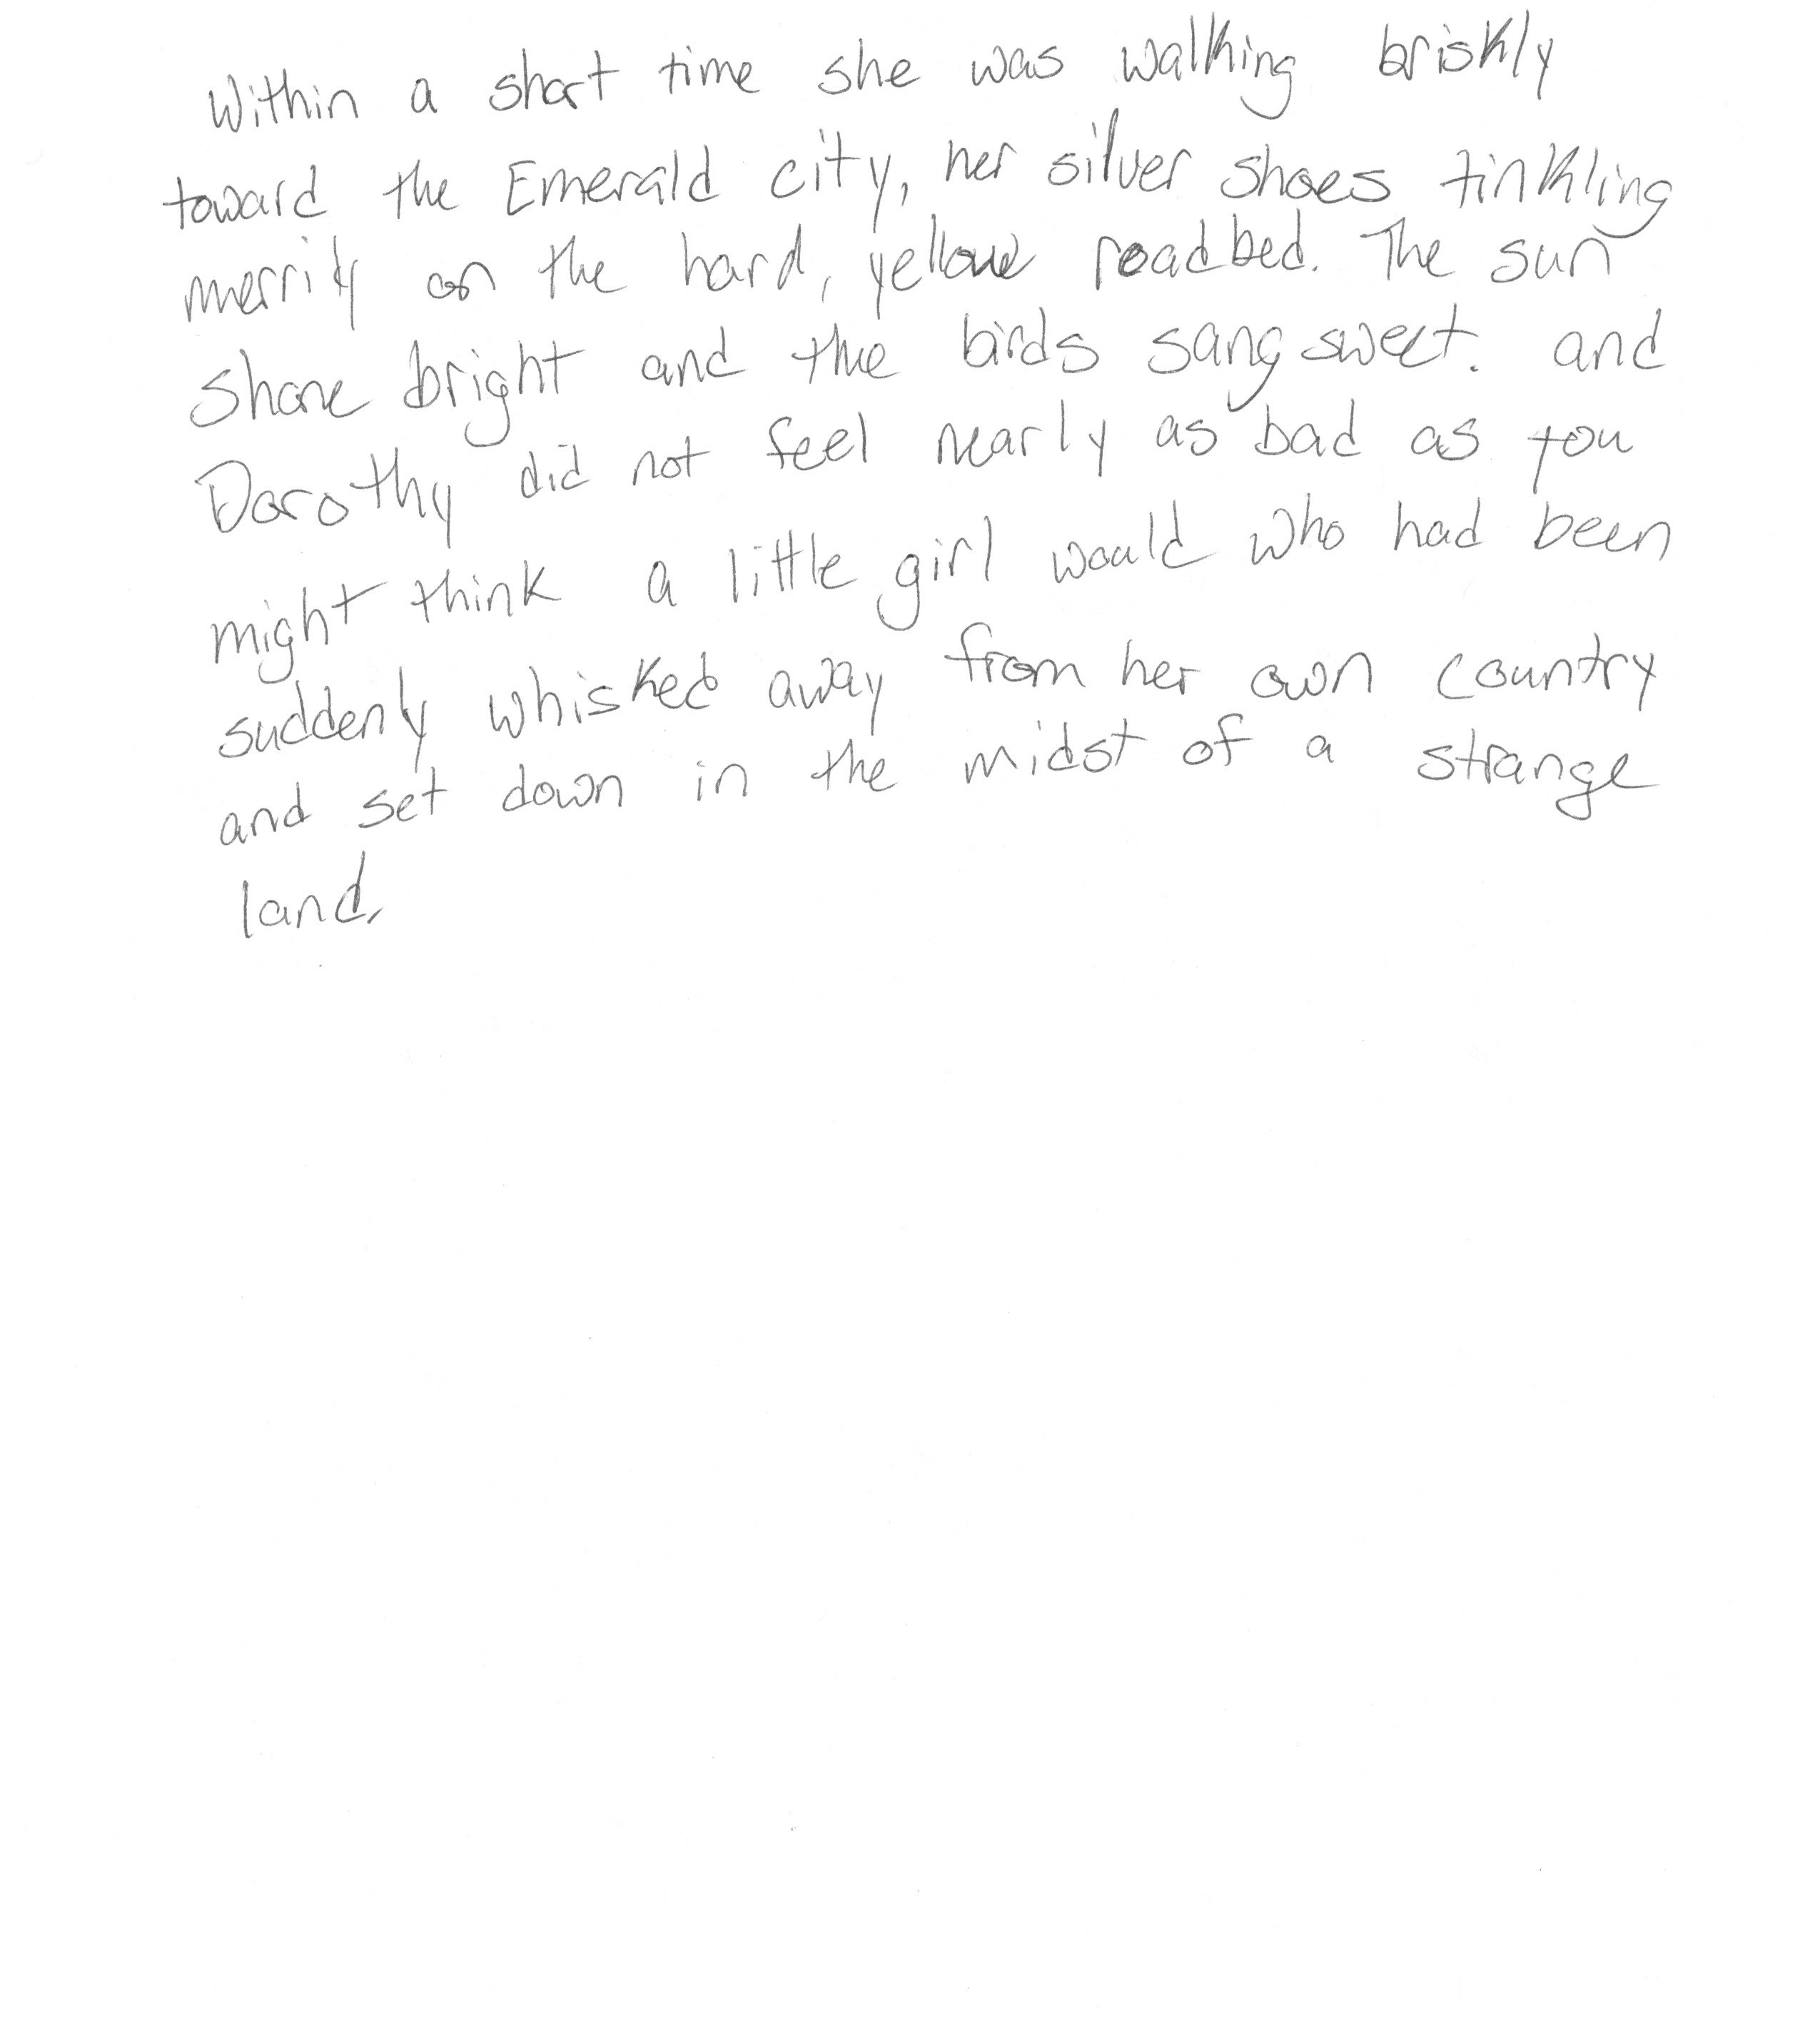 Within a short time she was walking briskly
toward the Emerald city, her silver shoes tinkling
merrily on the hard, yellow roadbed. The sun
shone bright and the birds sang sweet. and
Dorothy did not feel nearly as bad as you
might think a little girl would who had been
suddenly whisked away from her own country
and set down in the midst of a strange
land.